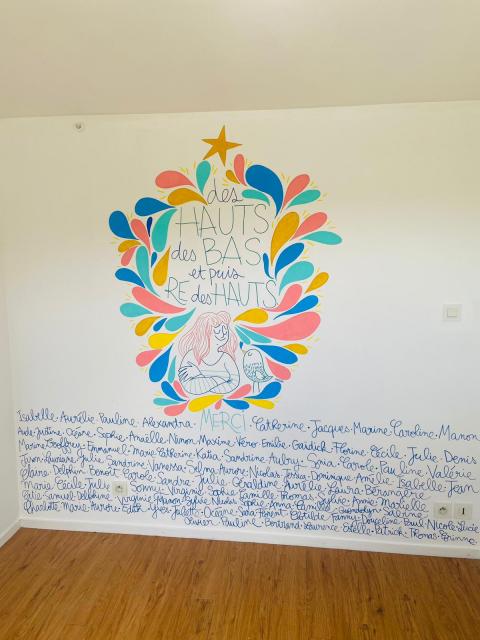 des
HAUTS
des BAS
et puis
RE des HAUTS
MERCI
Isabelle · Aurélie · Pauline · Alexandra · Catherine · Jacques · Marine · Caroline · Manon
Aude · Justine · Océane · Sophie · Anaëlle · Ninon · Maxime · Véro · Emilie · Florine · Cécile · Julie · Denis
Marine · Geoffrey · Emmanuel · Marie · Catherine · Katia · Sandrine · Audrey · Sonia · Carole · Pauline · Valérie
Julie · Sandrine · Vanessa · Selma · Aurore · Nicolas · Jessica · Dominique · Amélie · Isabelle · Jean
Claire · Delphine · Benoît · Carole · Sandra · Julie · Géraldine · Aurélie · Laura · Bérangère
Marie · Cécile · Julie · Virginie · Sophie · Famille · Thomas · Sylvie · Annie · Maëlle
Samuel · Delphine · Virginie · Manon · Sylvie · Nicolas · Sophie · Anna · Camille · Gwendolyn · Sabrina
Charlotte · Marie · Aurore · Edith · Yves · Juliette · Océane · Sara · Florent · Clotilde · Fanny · Paul · Nicole · Lucie
Pauline · Bertrand · Laurence · Estelle · Patrick · Thomas · Corinne